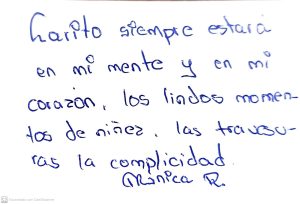 Charito siempre estará
en mi mente y en mi
corazón, los lindos momen-
tos de niñez, las travesu-
ras la complicidad.
Mónica R.